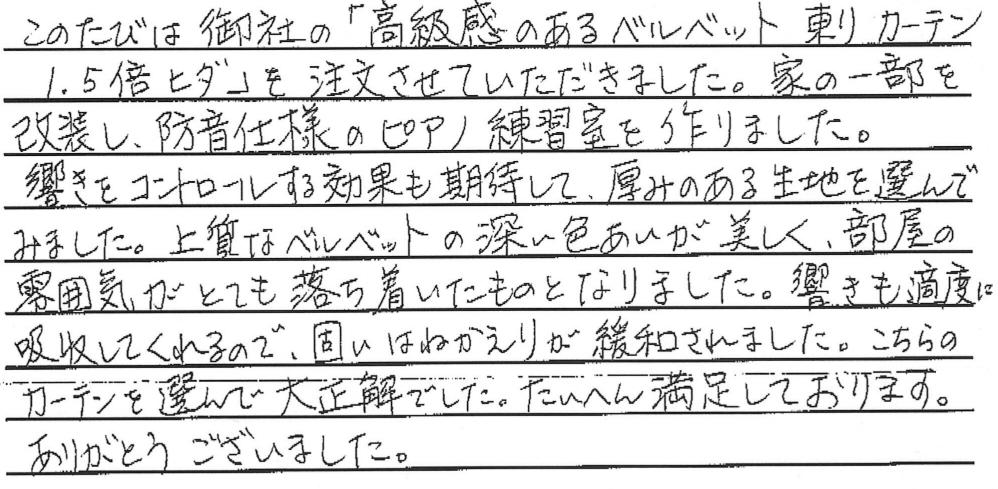 このたびは御社の「高級感のあるベルベット 東リ カーテン
1.5倍ヒダ」を注文させていただきました。家の一部を
改装し、防音仕様のピアノ練習室を作りました。
響きをコントロールする効果も期待して、厚みのある生地を選んで
みました。上質なベルベットの深い色あいが美しく、部屋の
雰囲気がとても落ち着いたものとなりました。響きも適度に
吸収してくれるので、固いはねかえりが緩和されました。こちらの
カーテンを選んで大正解でした。たいへん満足しております。
ありがとうございました。